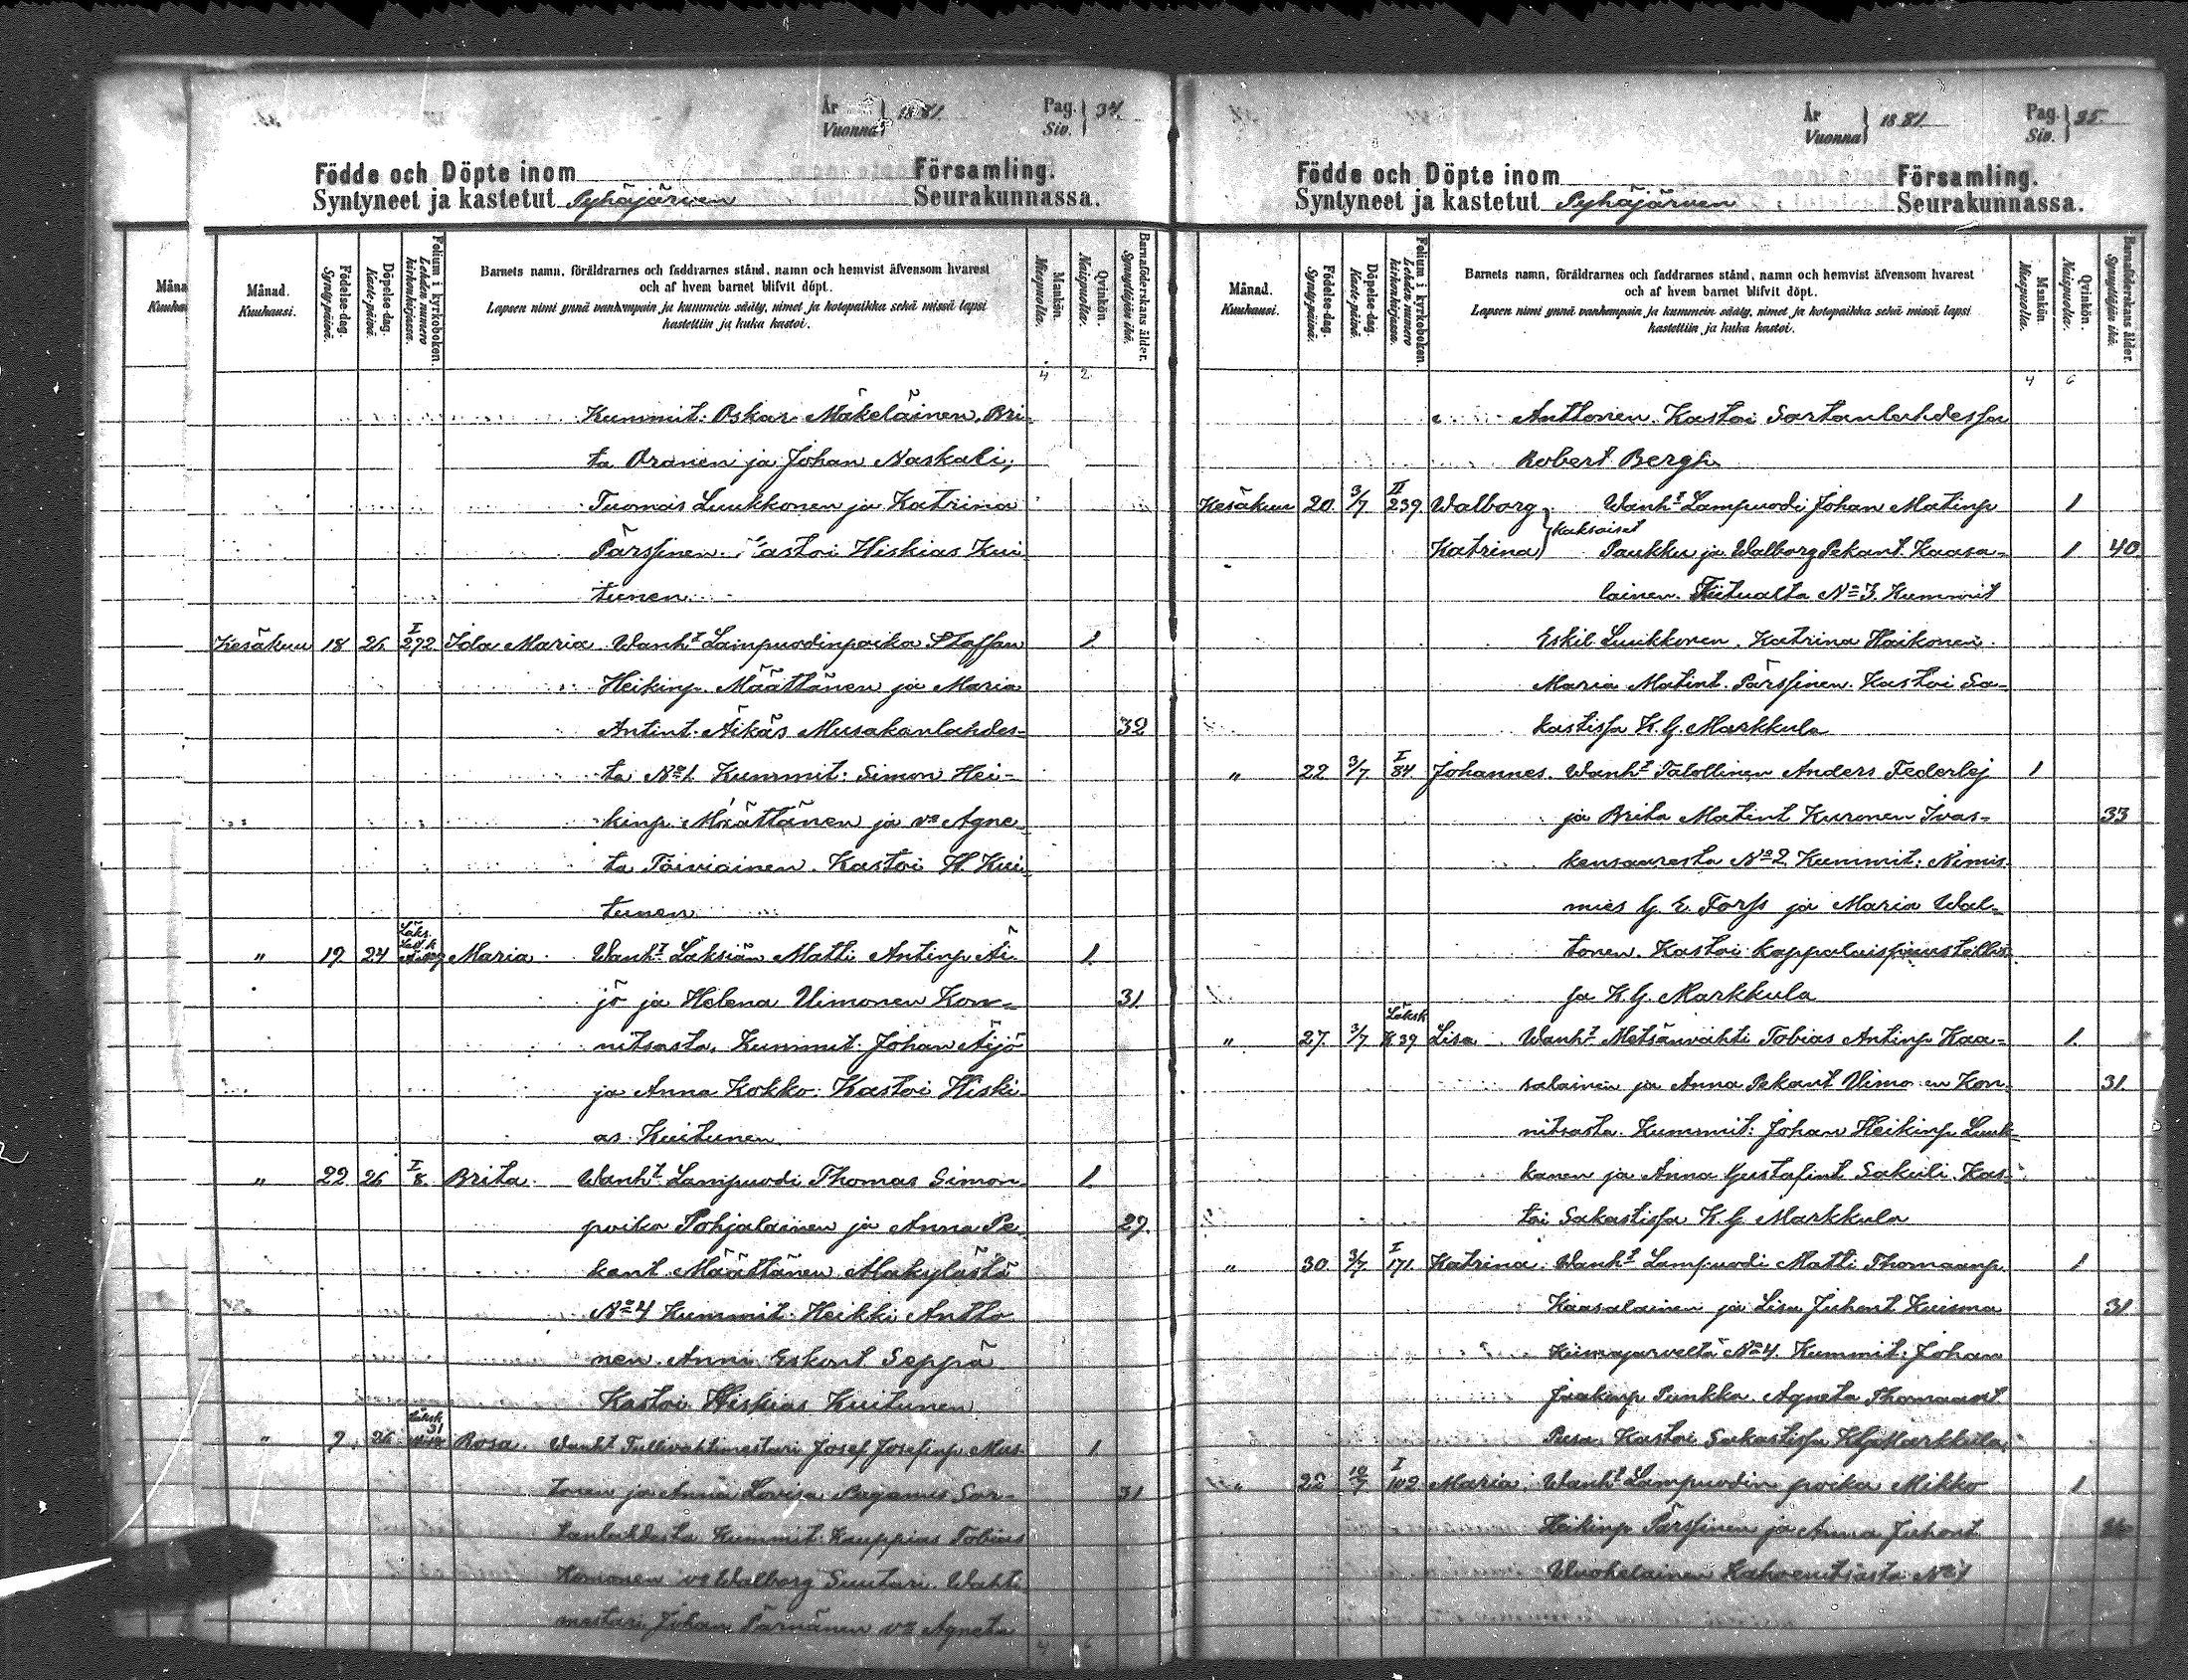 År
Vuonna } 1881.
Pag.
Siv. } 34.
Födde och Döpte inom Församling.
Syntyneet ja kastetut Pyhäjärven Seurakunnassa.
Månad. Kuuhausi.
Födelse-dag. Synty-päivä.
Döpelse-dag. Kaste-päivä.
Folium i kyrkoboken. Lehden numero kirkonkirjassa.
Barnets namn, föräldrarnes och faddrarnes stånd, namn och hemvist äfvensom hvarest
och af hvem barnet blifvit döpt.
Lapsen nimi ynnä vanhempain ja kummein sääty, nimet ja kotopaikka sekä missä lapsi
kastettiin ja kuka kastoi.
Mankön. Miespuolta.
Qvinkön. Naispuolta.
Barnaföderskans ålder. Synnyttäjän ikä.
4 2
Kummit: Oskar Mäkeläinen, Bri-
ta Oranen ja Johan Naskali;
Tuomas Luukkonen ja Katrina
Pärssinen. Kastoi Hiskias Kui-
tunen.
Kesäkuu 18 26 I 272 Ida Maria Wanht Lampuodinpoika Staffan 1
Heikinp. Määttänen ja Maria
Antint. Äikäs Musakanlahdes- 32
ta No 1. Kummit: Simon Hei-
kinp. Määttänen ja vo Agne-
ta Toiviainen. Kastoi H. Kui-
tunen
" 19 24 Maria. Wanht Läksiän Matti Antinp. Äi- 1
jö ja Helena Uimonen Kon- 31
nitsasta. Kummit: Johan Äijö
ja Anna Kokko. Kastoi Hiski-
as Kuitunen.
" 22 26 I 8. Brita. Wanht Lampuodi Thomas Simon- 1
poika Pohjalainen ja Anna Pe- 29.
kant. Määttänen Makylästä
No 4 Kummit: Heikki Antto-
nen. Anni Eskont Seppä
Kastoi Hiskias Kuitunen
" 9. 26 Rosa. Wanht Tullivahtimestari Josef Josefinp. Mus- 1
tonen ja Anna Lovisa Paganus Sor- 31
tanlahdesta Kummit: Kauppias Tobias
Homonen vo Walborg Suutari. Wahti-
mestari Johan Pärnänen vo Agneta
4 6
År
Vuonna } 1881.
Pag.
Siv. } 35.
Födde och Döpte inom Församling.
Syntyneet ja kastetut Pyhäjärven Seurakunnassa.
Månad. Kuuhausi.
Födelse-dag. Synty-päivä.
Döpelse-dag. Kaste-päivä.
Folium i kyrkoboken. Lehden numero kirkonkirjassa.
Barnets namn, föräldrarnes och faddrarnes stånd, namn och hemvist äfvensom hvarest
och af hvem barnet blifvit döpt.
Lapsen nimi ynnä vanhempain ja kummein sääty, nimet ja kotopaikka sekä missä lapsi
kastettiin ja kuka kastoi.
Mankön. Miespuolta.
Qvinkön. Naispuolta.
Barnaföderskans ålder. Synnyttäjän ikä.
4 6
Anttonen. Kastoi Sortanlahdessa
Robert Bergh
Kesäkuu 20. 3/7 II 239. Walborg Wanht Lampuodi Johan Matinp 1
Katrina } Kaksoiset Paukku ja Walborg Pekant. Kaasa- 1 40
lainen. Tiitualta No 3. Kummit
Eskil Luukkonen, Katrina Haikonen.
Maria Matint. Pärssinen. Kastoi Sa-
kastissa K. G. Markkula
" 22 3/7 I 84. Johannes. Wanht Talollinen Anders Federlej 1
ja Brita Matint Kuronen Ivas- 33
kensaaresta No 2. Kummit: Nimis-
mies G. E. Forss ja Maria Wal-
tonen. Kastoi
ja K. G. Markkula
" 27. 3/7 Läksk K 39 Lisa. Wanht Metsänvahti Tobias Antinp. Kaa- 1.
salainen ja Anna Pekant Uimo en Kon- 31.
nitsasta. Kummit: Johan Heikinp. Luuk-
kanen ja Anna Gustafint Sakuli. Kas-
toi Sakastissa K. G. Markkula
" 30 3/7 I 171. Katrina. Wanht Lampuodi Matti Thomaanp. 1
Kaasalainen ja Lisa Juhont. Kuisma 31
Kiimajarveltä No 4. Kummit: Johan
Jaakinp Punkka. Agneta Thomaant
Pusa. Kastoi Sakastissa K G Markkula.
" 22 10/7 I 102 Maria. Wanht Lampuodin poika Mikko 1
Heikinp Pärssinen ja Anna Juhont
Wuohelainen Kahvenitsasta No 1